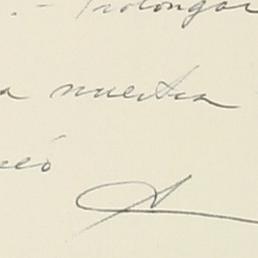 .- Prolongar
a nuestra
eó
A